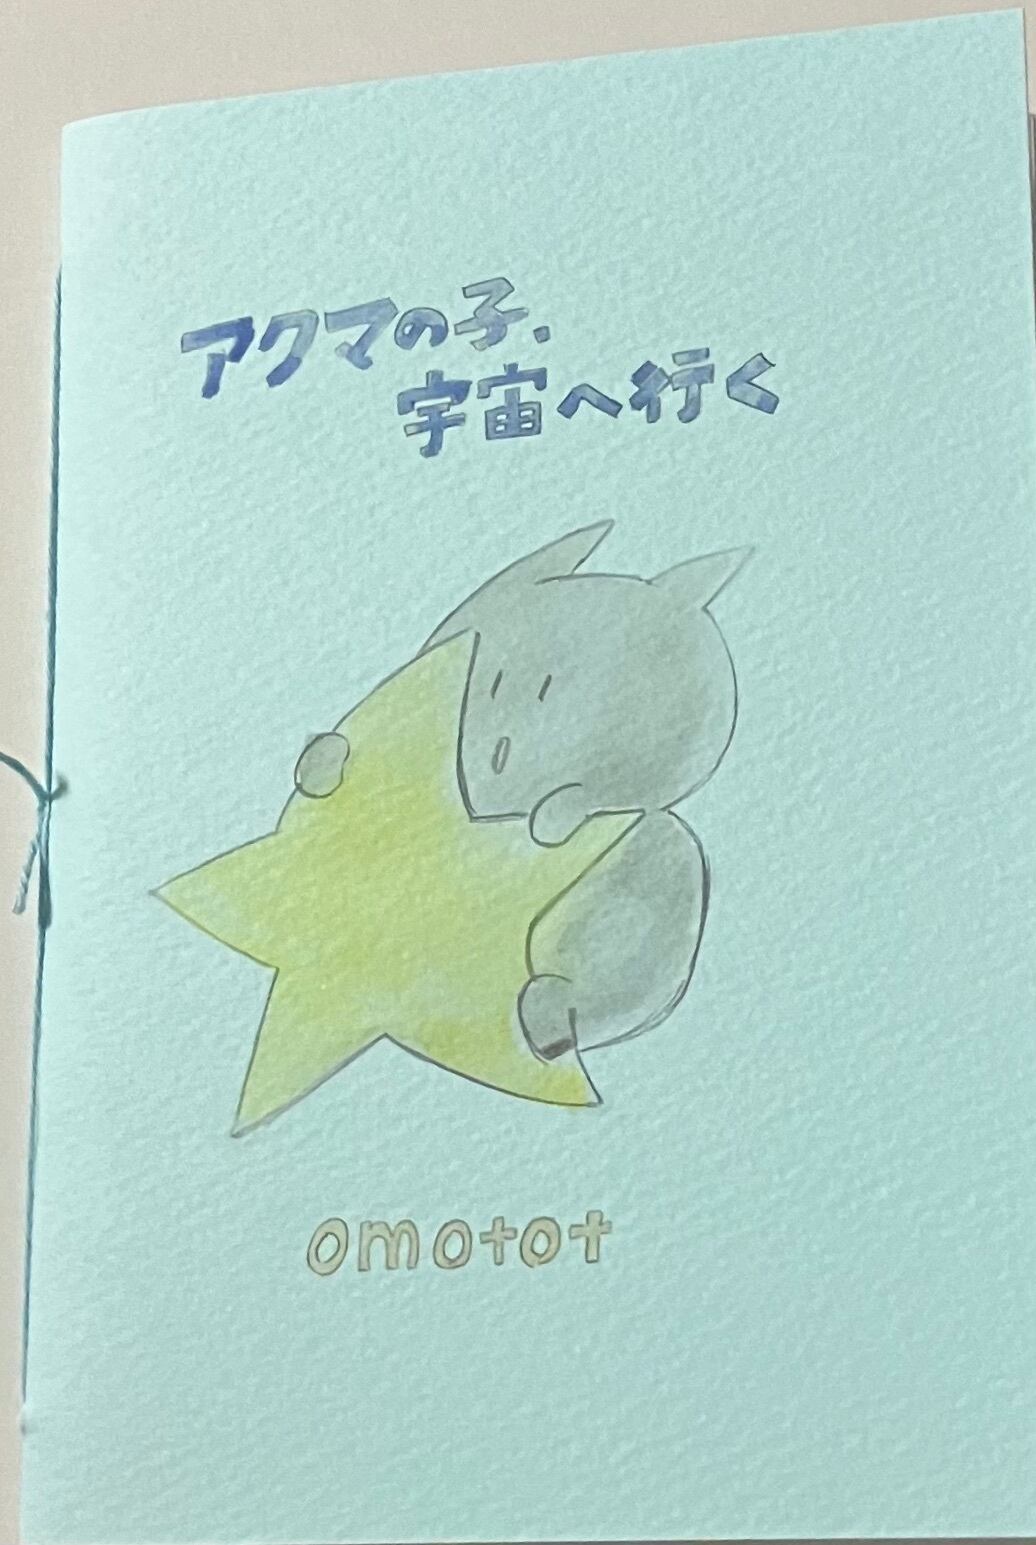 アクマの子、
宇宙へ行く
omotot